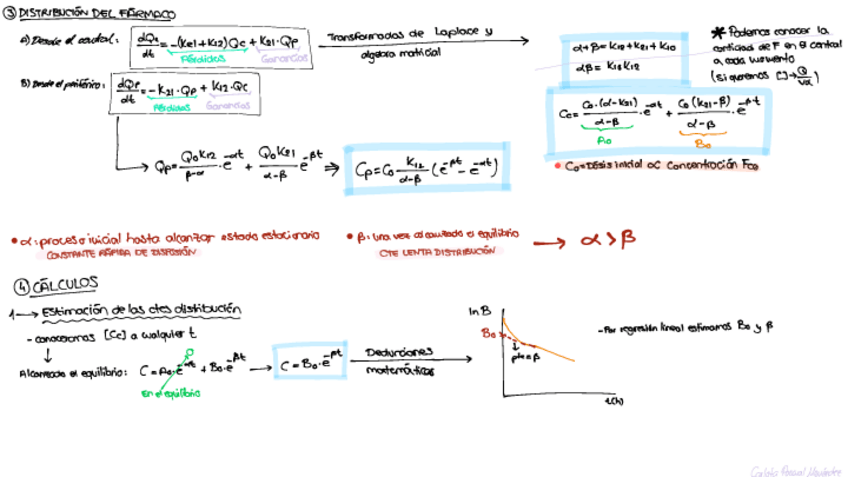 ③ DISTRIBUCIÓN DEL FÁRMACO
A) Desde el central: dQc/dt = -(Kel+K12)Qc + K21·Qp
Pérdidas Ganancias
Transformadas de Laplace y
álgebra matricial
α+β = K12+K21+K10
αβ = K13K12
* Podemos conocer la
cantidad de F en θ central
a cada momento
(si queremos [ ] → Q/Vd)
B) Desde el periférico: dQp/dt = -K21·Qp + K12·Qc
Pérdidas Ganancias
Cc = C0·(α-K21)/α-β · e^-αt + C0(K21-β)/α-β · e^-βt
A0 B0
Qp = Q0K12/β-α · e^-αt + Q0K21/α-β e^-βt ⇒ Cp = C0 K12/α-β (e^-βt - e^-αt)
• C0 = Dosis inicial OC Concentración
• α: proceso inicial hasta alcanzar estado estacionario
CONSTANTE RÁPIDA DE DISPOSIÓN
• β: una vez alcanzado el equilibrio
CTE LENTA DISTRIBUCIÓN
→ α > β
④ CÁLCULOS
1 → Estimación de las ctes distribución
- conocemos [Cc] a cualquier t
↓
Alcanzado el equilibrio: C = A0·e^-αt + B0·e^-βt → C = B0·e^-βt
0
En el equilibrio
Deducciones
matemáticas
ln B
B0
pte = β
t(h)
- Por regresión lineal estimamos B0 y β